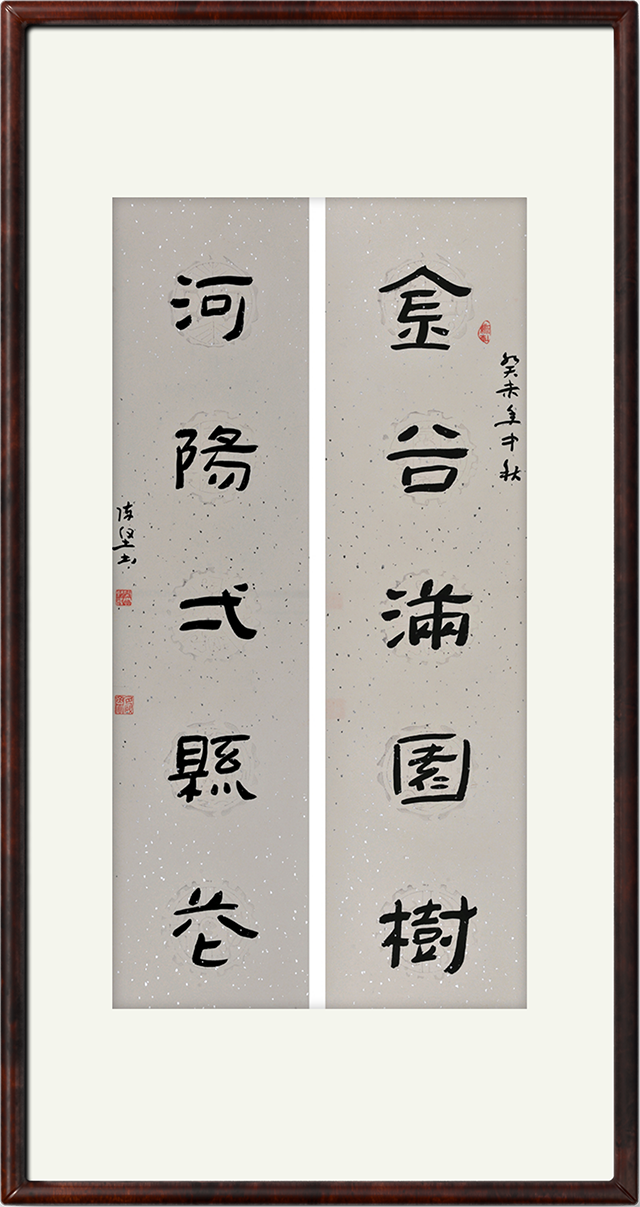 金谷滿園樹
癸未年中秋
河陽弌縣花
陈坚书